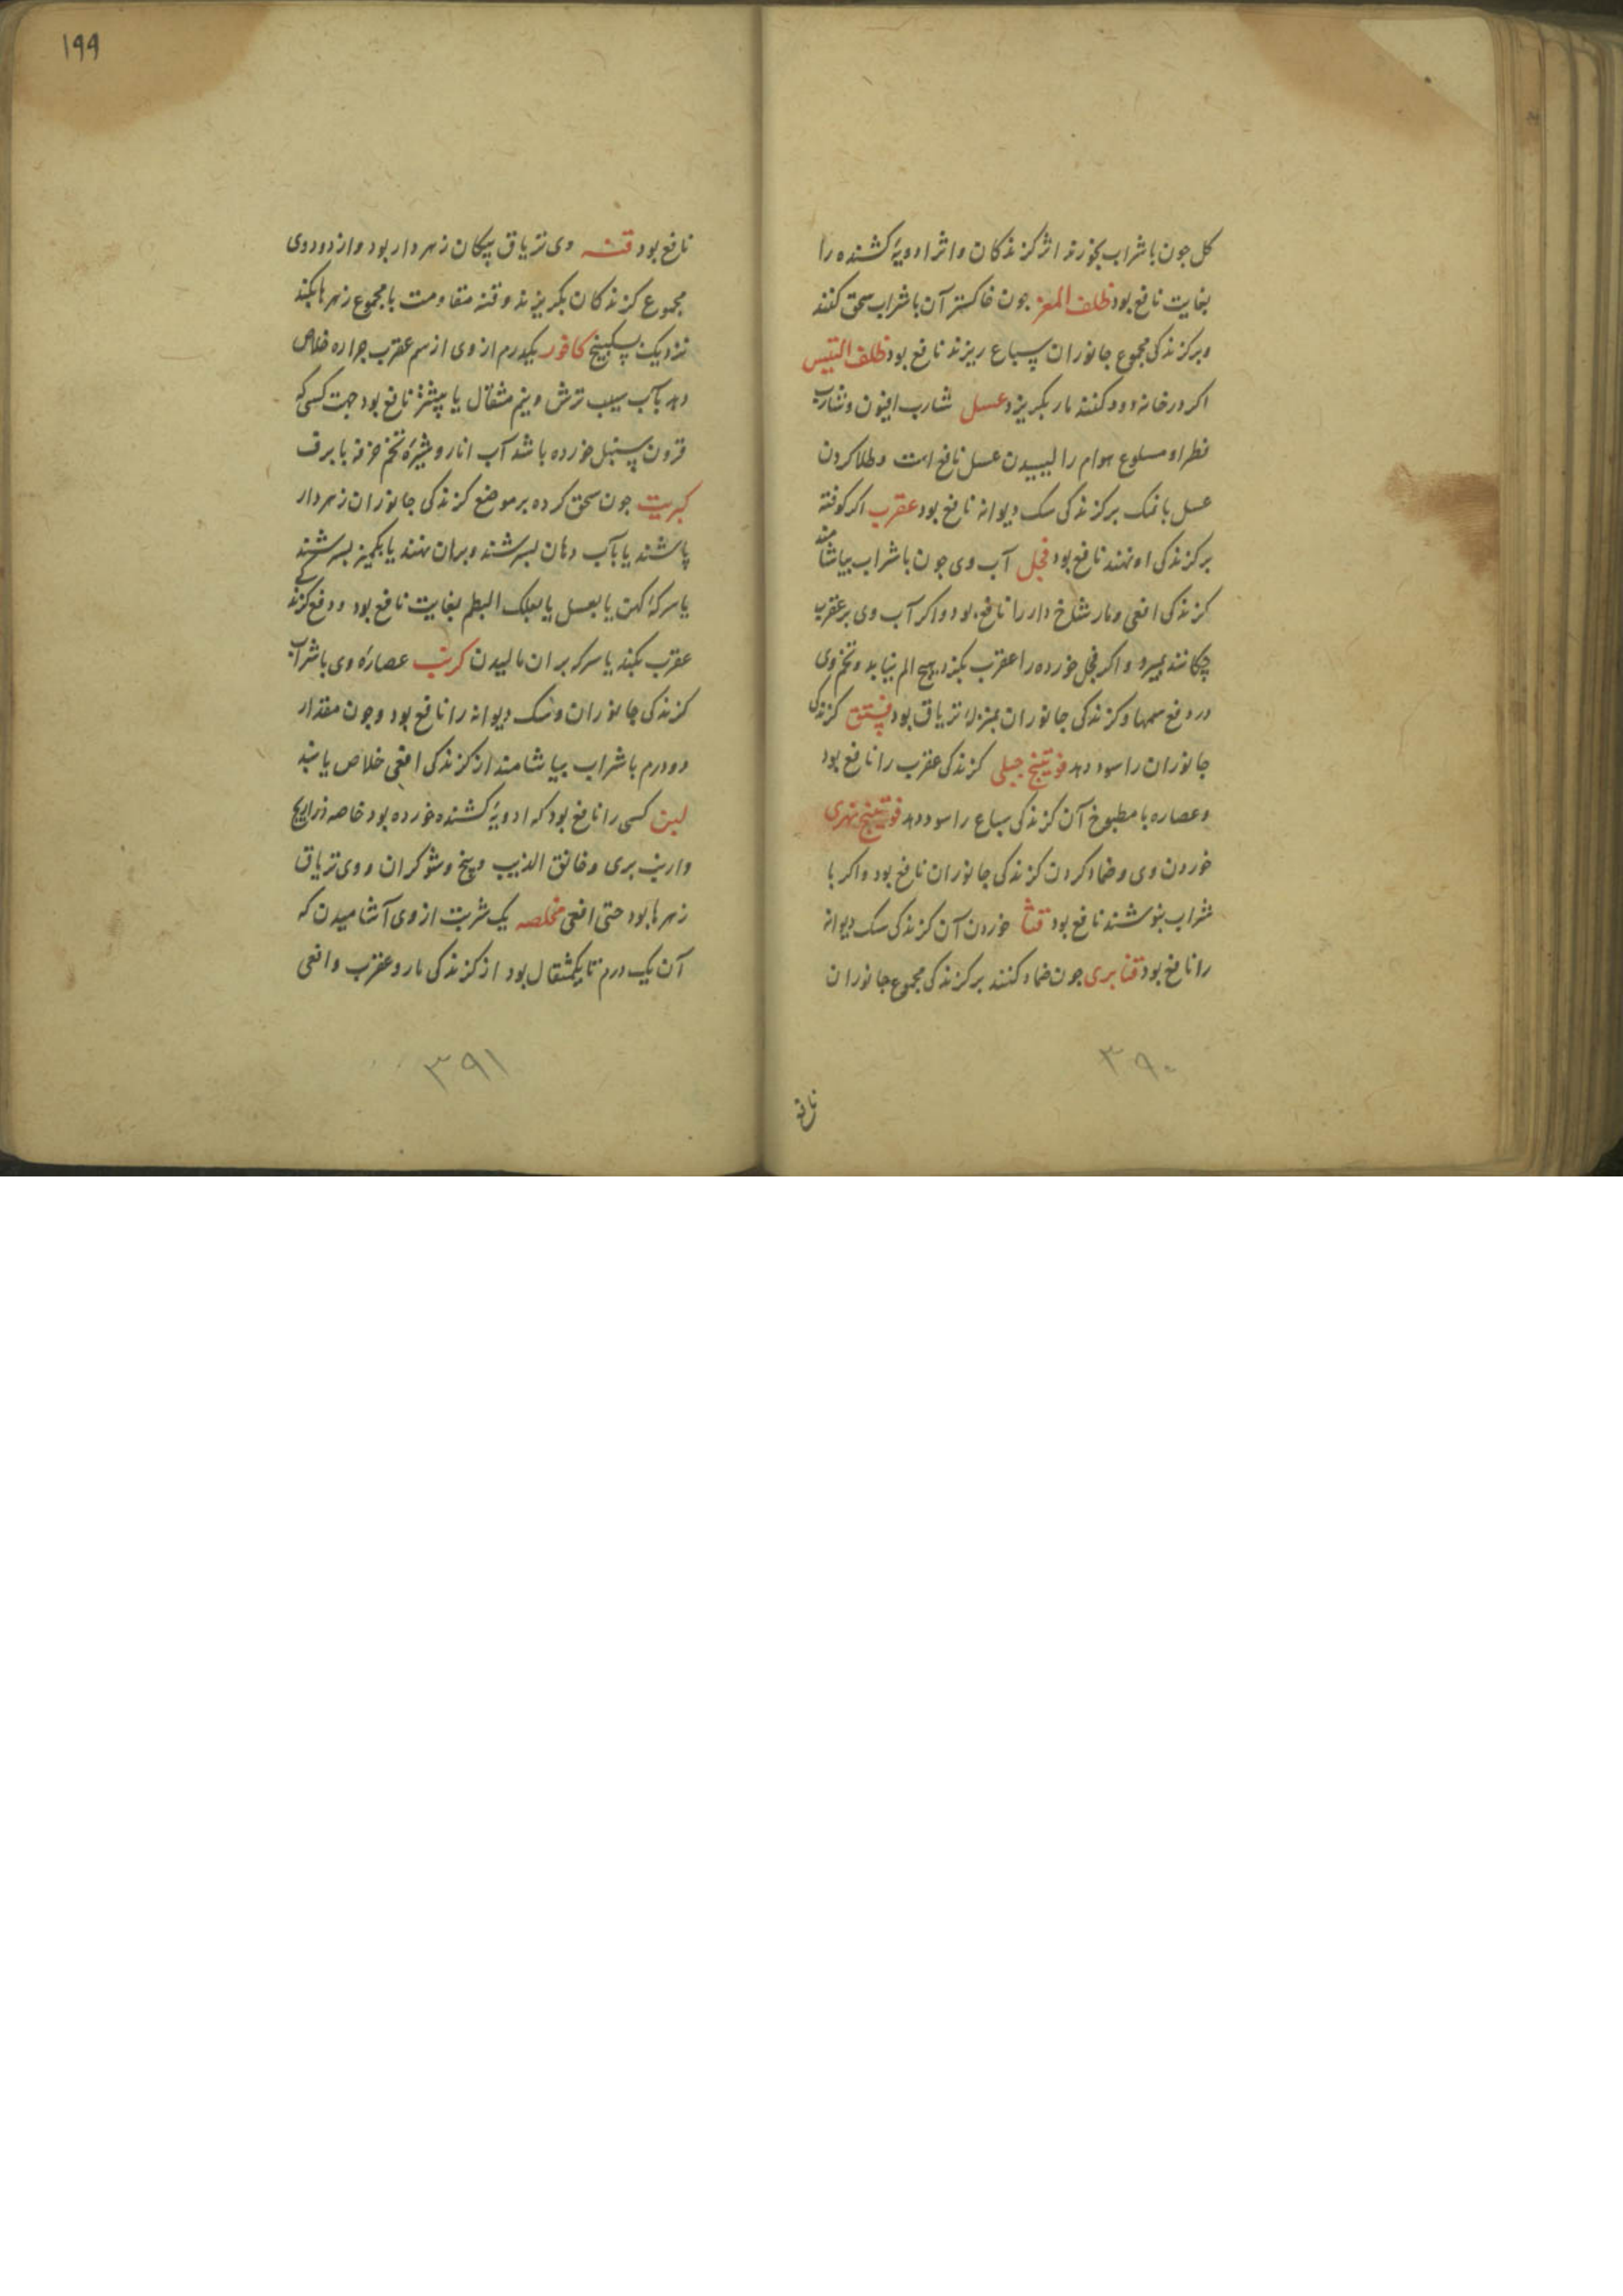 کل جون باشراب بخورند اثر کزندکان و اثر ادویهٔ کشنده را
بغایت نافع بود ظلف المعز جون خاکستر آن باشراب سحق کنند
وبر کزندکی مجموع جانوران و سباع ریزند نافع بود ظلف التیس
اکر درخانه دود کنند مار بکریزد عسل شارب افیون و شارب
فطر او مسلوع هوام را لیسیدن عسل نافع است و طلا کردن
عسل بانمک برکزندکی سک دیوانه نافع بود عقرب اکر کوفته
برکزندکی او نهند نافع بود فجل آب وی جون باشراب بیاشامند
کزندکی افعی و مار شاخ دار را نافع بود و اکر آب وی بر عقرب
چکانند بمیرد و اکر فجل خورده را عقرب بکزد هیچ الم نیابد و تخم وی
در دفع سمها و کزندکی جانوران بمنزلهٔ تریاق بود فستق کزندکی
جانوران را سود دهد فوتنج جبلی کزندکی عقرب را نافع بود
وعصاره یا مطبوخ آن کزندکی سباع را سود دهد فوتنج نهری
خوردن وی و ضماد کردن کزندکی جانوران نافع بود و اکر با
شراب بنوشند نافع بود قثا خوردن آن کزندکی سک دیوانه
را نافع بود قنابری جون ضماد کنند بر کزندکی مجموع جانوران
۳۹۰
نافع
۱۹۹
نافع بود قنه وی تریاق پیکان زهردار بود و از دود وی
مجموع کزندکان بکریزند و قنه مقاومت با مجموع زهرها بکند
نزدیک بسکبینج کافور یکدرم از وی از سم عقرب جراره خلاص
دهد بآب سیب ترش و نیم مثقال یا بیشتر نافع بود جهت کسی که
قرون سنبل خورده باشد آب انار و شیرهٔ تخم خرفه با برف
کبریت جون سحق کرده بر موضع کزندکی جانوران زهردار
پاشند یا بآب دهان بسرشند وبران نهند یا بکمیز بسرشند
یا سرکهٔ کهن یا بعسل یا بعلک البطم بغایت نافع بود و دفع کزندکی
عقرب بکند یا سرکه بران مالیدن کرنب عصارهٔ وی باشراب
کزندکی جانوران و سک دیوانه را نافع بود و جون مقدار
دو درم باشراب بیاشامند از کزندکی افعی خلاص یابند
لبن کسی را نافع بود که ادویهٔ کشنده خورده بود خاصه ذراریح
وارنب بری و خانق الذیب و بنج و شوکران و وی تریاق
زهرها بود حتی افعی مخلصه یک شربت از وی آشامیدن که
آن یک درم تا یکمثقال بود از کزندکی مار و عقرب و افعی
۳۹۱